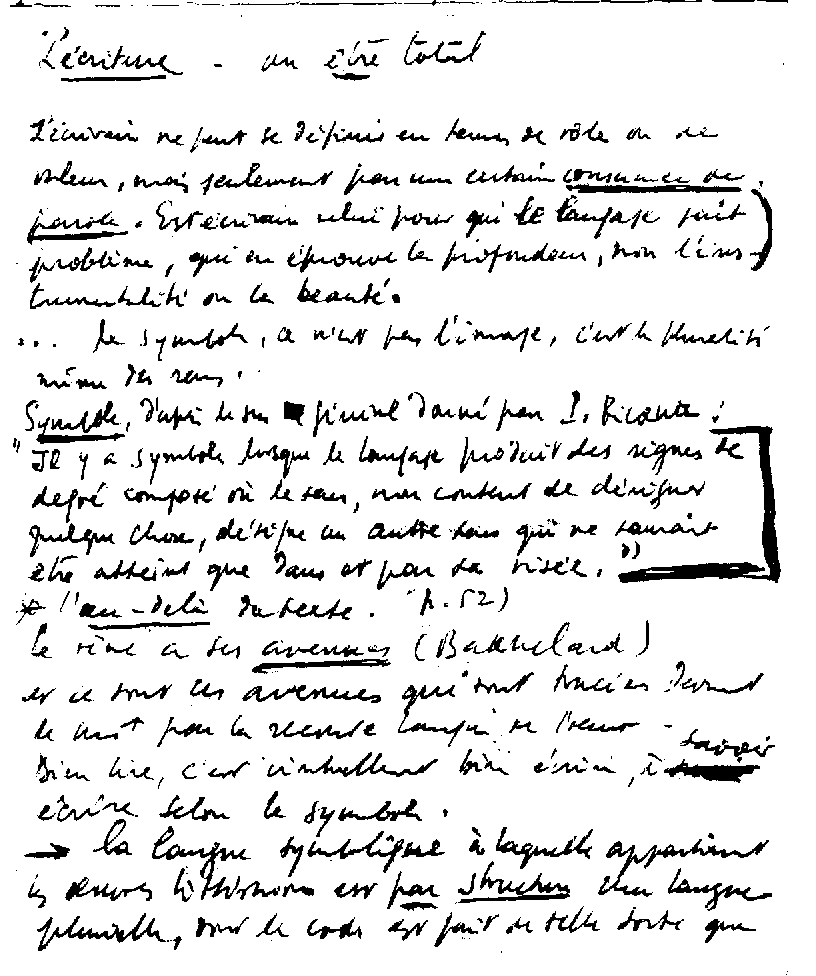 L'écriture - un être total
L'écrivain ne peut se définir en termes de rôle ou de
valeur, mais seulement par une certaine conscience de
parole. Est écrivain celui pour qui le langage fait
problème, qui en éprouve la profondeur, non l'ins-
trumentalité ou la beauté.
... le symbole, ce n'est pas l'image, c'est la pluralité
même des sens.
Symbole, d'après le sens général donné par P. Ricoeur :
"Il y a symbole lorsque le langage produit des signes de
degré composé où le sens, non content de désigner
quelque chose, désigne un autre sens qui ne saurait
être atteint que dans et par sa visée."
* l'au-delà du texte. p. 52)
Le rêve a ses avenues (Bachelard)
et ce sont ces avenues qui sont tracées devant
le mot par la seconde langue de l'oeuvre -
Bien lire, c'est virtuellement bien écrire, à savoir
écrire selon le symbole.
→ la langue symbolique à laquelle appartiennent
les oeuvres littéraires est par structure une langue
plurielle, dont le code est fait de telle sorte que